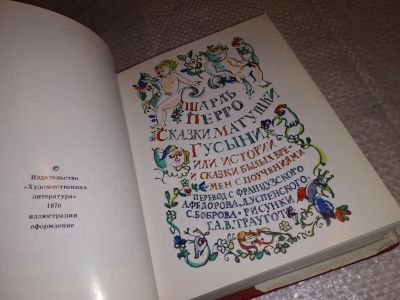 ©
Издательство
«Художественная
литература»
1976
иллюстрации
оформление
ШАРЛЬ
ПЕРРО
СКАЗКИ МАТУШКИ
ГУСЫНИ
ИЛИ ИСТОРИИ
И СКАЗКИ БЫЛЫХ ВРЕ-
МЕН С ПОУЧЕНИЯМИ
ПЕРЕВОД С ФРАНЦУЗСКОГО
А.ФЕДОРОВА, Л.УСПЕНСКОГО,
С.БОБРОВА · РИСУНКИ
Г.А.В. ТРАУГОТ